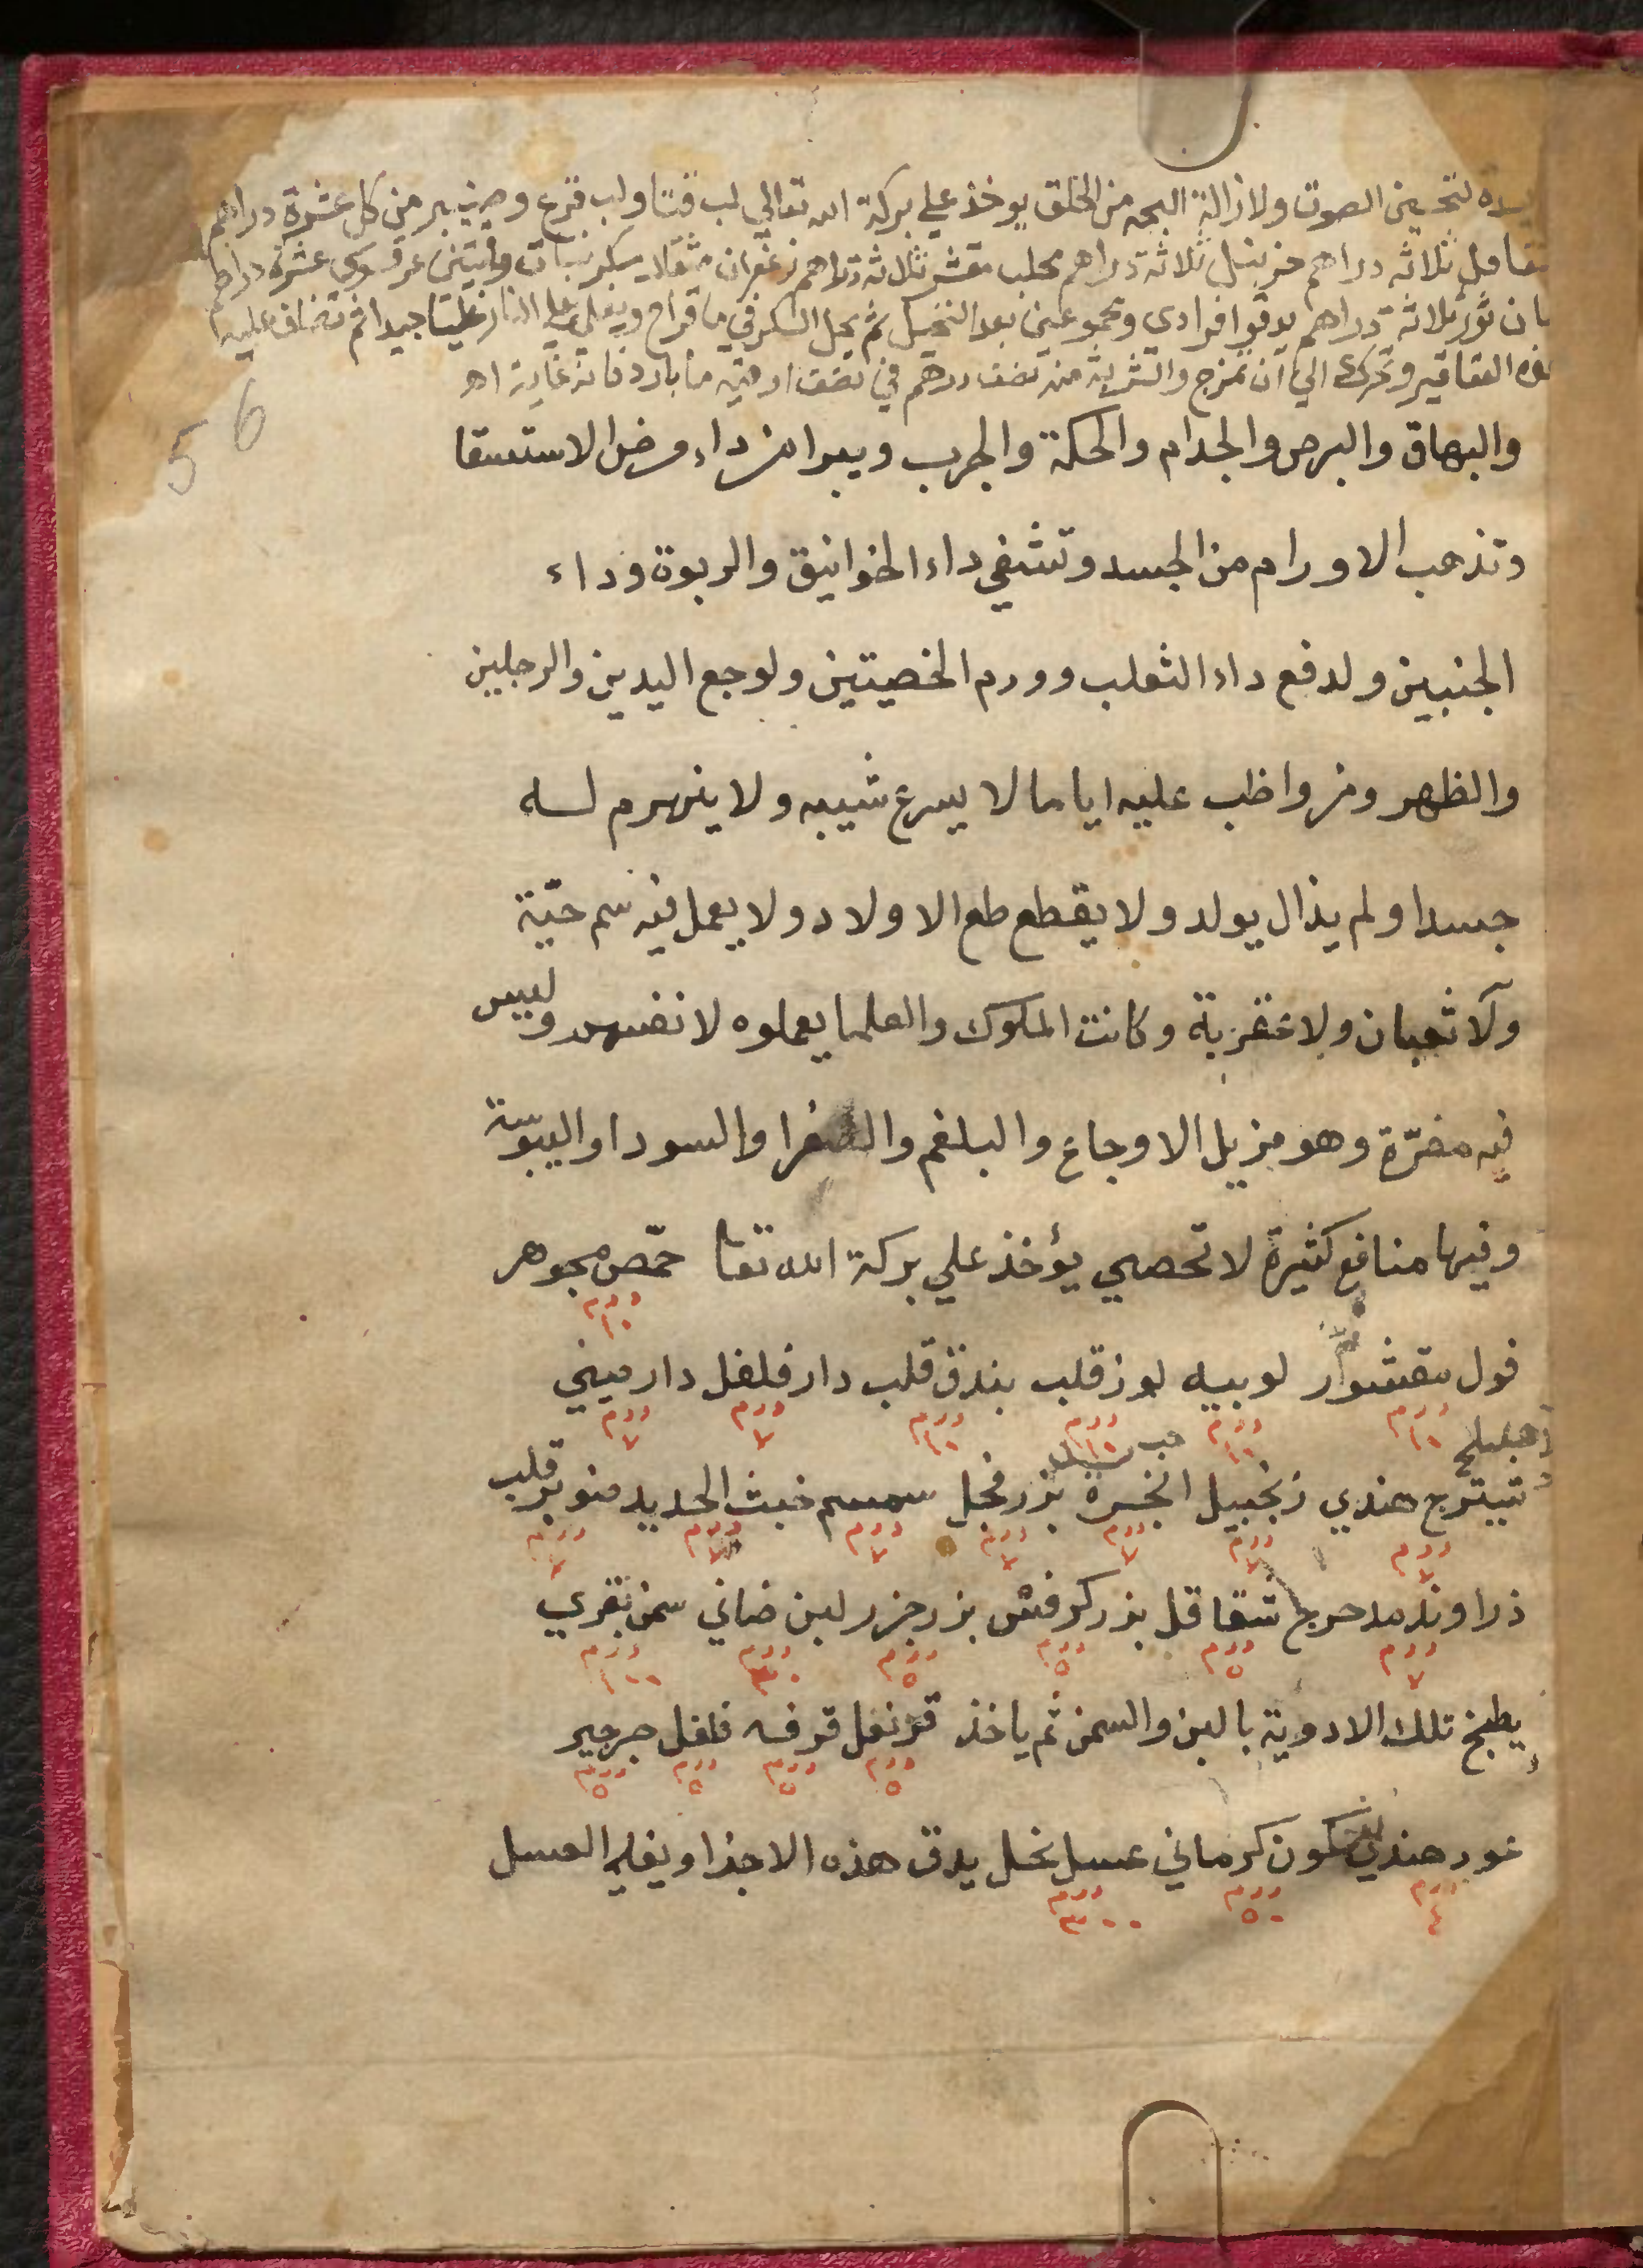 لتحسين الصوت ولازالة البحه من الحلق يوخذ علي بركة الله تعالي لب قثا ولب قرع وصنبر من كل عشرة دراهم
ثلاثه دراهم ثلاثة دراهم محلب مقشر ثلاثة دراهم زعفران مثقال سكر نبات عرقسوس عشرة دراهم
ثلاثة دراهم يدقوا فرادي ومجموعين بعد النخيل ثم يحل السكر في ما قراح ويغلي علي النار غليا جيدا ثم تضاف عليه
العقاقير وتحركه الي ان تمزج والشربة منه نصف درهم في نصف اوقيه ما بارد فانه غاية اه
56
والبهاق والبرص والجدام والحكة والجرب ويبرا من داء ومرض الاستسقا
وتذهب الاورام من الجسد وتشفي داء الخوانيق والربوة وداء
الجنبين ولدفع داء الثعلب وورم الخصيتين ولوجع اليدين والرجلين
والظهر ومن واظب عليه اياما لا يسرع شيبه ولا ينهرم له
جسدا ولم يذال يولد ولا يقطع طع الاولاد ولا يعمل فيه سم حيّة
ولا ثعبان ولا عقربة وكانت الملوك والعلما يعملوه لانفسهم وليس
فيه مضرّة وهو مزيل الاوجاع والبلغم والصفرا والسودا واليبوّسة
وفيها منافع كثيرة لا تحصي يؤخذ علي بركة الله تعا حمّص مجوهر
درم ١٠
فول مقشور لوبيه لوز قلب بندق قلب دار فلفل دار صيني
درم ١٠ درم ١٠ درم ١٠ درم ١٠ درم ٧ درم ٧
هندي زنجبيل انجرة حب بزر فجل سمسم خبث الحديد صنوبر قلب
درم ٧ درم ٧ درم ٧ درم ٧ درم ٧ درم ٧ درم ٧
ذراوند مدحرج شقاقل بزر كرفس بزر جزر لبن ضاني سمن بقري
درم ٧ درم ٥ درم ٥ درم ٥ درم درم ١٠٠
يطبخ تلك الادوية بالبن والسمن ثم ياخذ قرنفل قرفه فلفل جرجير
درم ٥ درم ٥ درم ٥ درم ٥
عود هندي كمون كرماني عسل نحل يدق هذه الاجذا ويغلي العسل
درم ٤ درم ٥٠ درم ٣٠٠